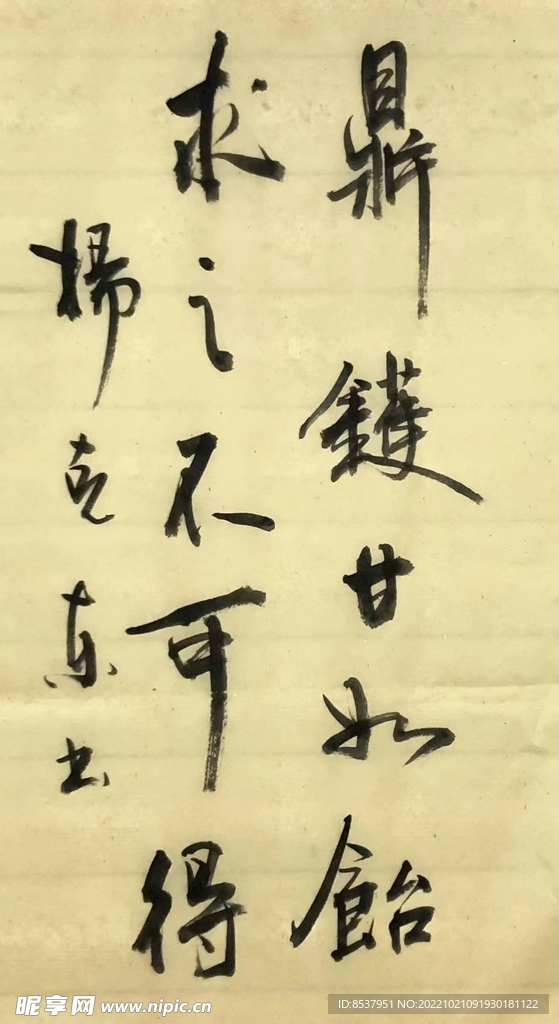 鼎鑊甘如飴
求之不可得
楊克东书
昵享网 www.nipic.cn
ID:8537951 NO:20221021091930181122